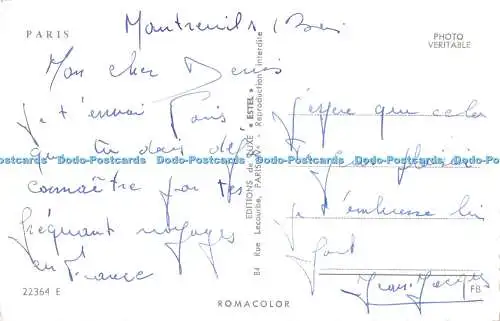 Montreuil s/Bois
PARIS
PHOTO
VERITABLE
Mon cher Denis
je t'envoi Paris
que tu dois déjà
connaître par tes
fréquant voyages
en France
EDITIONS de LUXE « ESTEL »
84 Rue Lecourbe, PARIS-XV° - Reproduction interdite
j'espère que cela
te fera plaisir
je t'embrasse bien
fort
Jean-Jacques
Dodo-Postcards Dodo-Postcards Dodo-Postcards Dodo-Postcards Dodo-Postcards Dodo-Postcards
22364 E
FB
ROMACOLOR